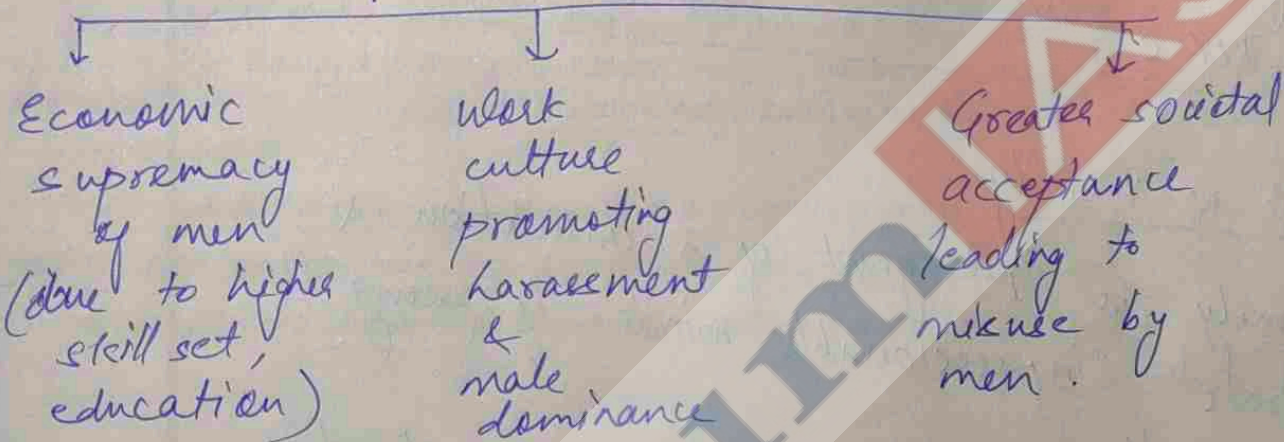 Economic
supremacy
of men
(due to higher
skill set,
education)
Work
culture
promoting
harassment
&
male
dominance
Greater societal
acceptance
leading to
misuse by
men.